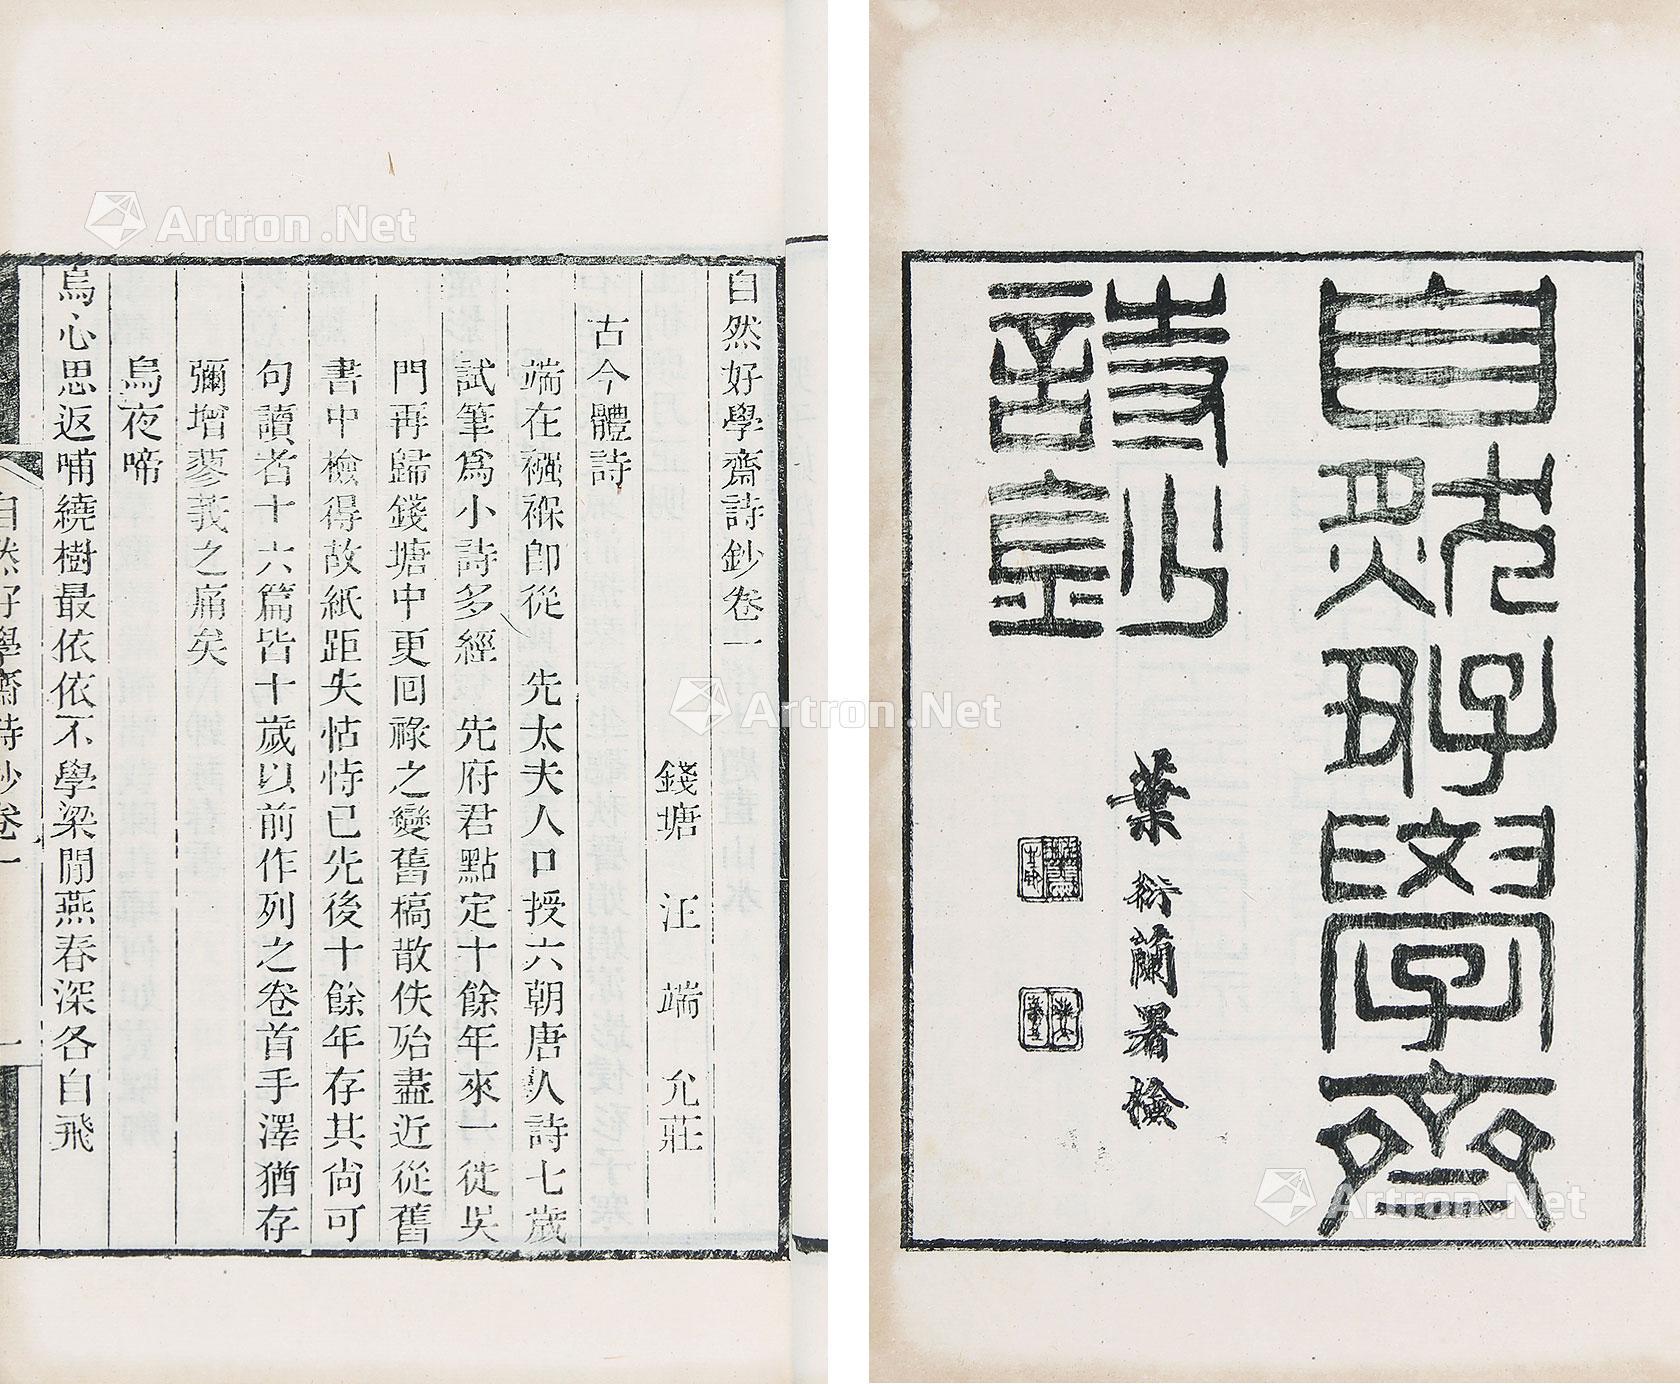 自然好學齋
詩鈔
葉衍蘭署檢
自然好學齋詩鈔卷一
錢塘 汪 端 允莊
古今體詩
端在襁褓卽從 先太夫人口授六朝唐人詩七歲
試筆爲小詩多經 先府君點定十餘年來一徙吳
門再歸錢塘中更回祿之變舊稿散佚殆盡近從舊
書中檢得故紙距失怙恃已先後十餘年存其尙可
句讀者十六篇皆十歲以前作列之卷首手澤猶存
彌增蓼莪之痛矣
烏夜啼
烏心思返哺繞樹最依依不學梁閒燕春深各自飛
自然好學齋詩鈔卷一
一
Artron.Net
Artron.Net
Artron.Net